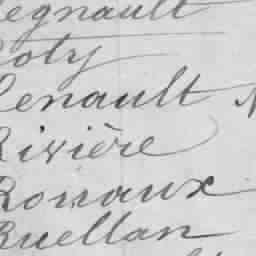 Regnault
Roty
Renault
Rivière
Rouaux
Ruellan